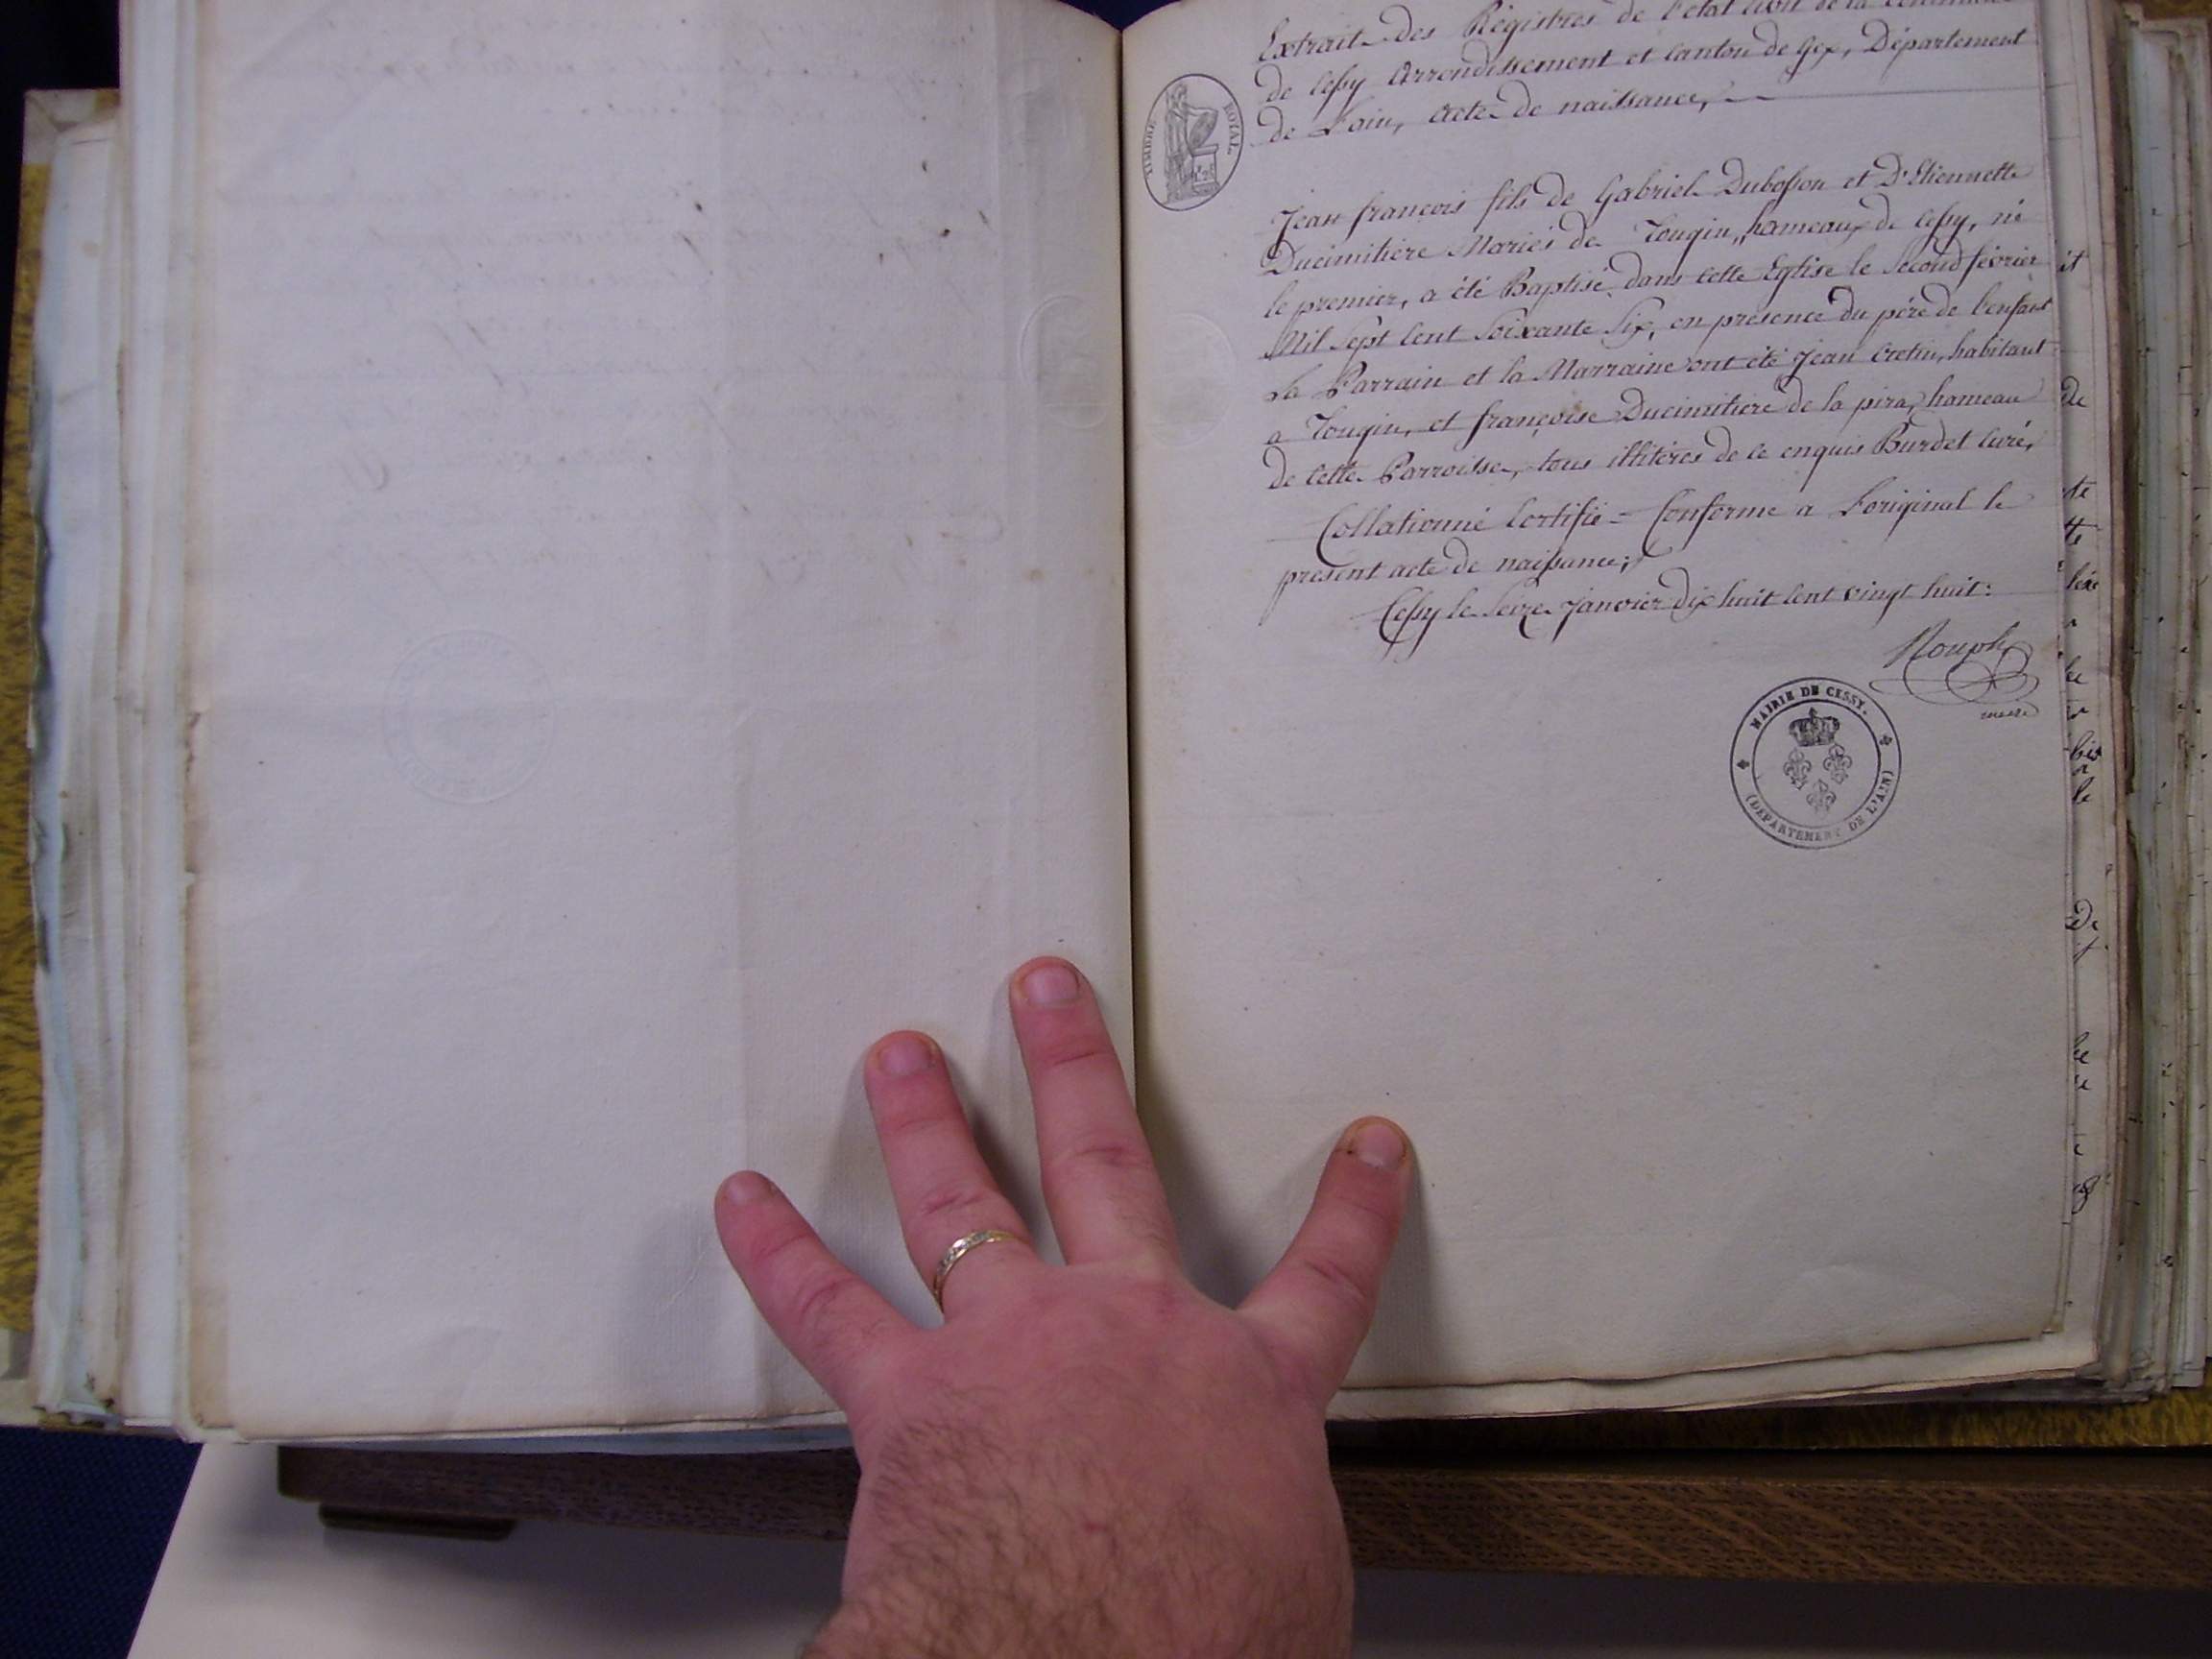 Extrait des Régistres de l'état civil de la commune
de Cessy Arrondissement et Canton de Gex, Département
de Lain, acte de naissance,
TIMBRE ROYAL
Jean françois fils de Gabriel Dubosson et D'Etiennette
Ducimitière Mariés de Tougin, hameaux de Cessy, né
le premier, a été Baptisé dans cette Eglise le second février
Mil Sept Cent Soixante Six, en présence du père de l'enfant
La Parrain et la Marraine ont été Jean Cretin, habitant
a Tougin, et françoise Ducimitière de la pira, hameau
de cette Parroisse, tous illitérés de ce enquis Burdet Curé,
Collationné Certifié Conforme a L'original le
présent acte de naissance;
Cessy le Seize Janvier dix huit Cent vingt huit:
Rouph
maire
MAIRIE DE CESSY.
(DÉPARTEMENT DE L'AIN)